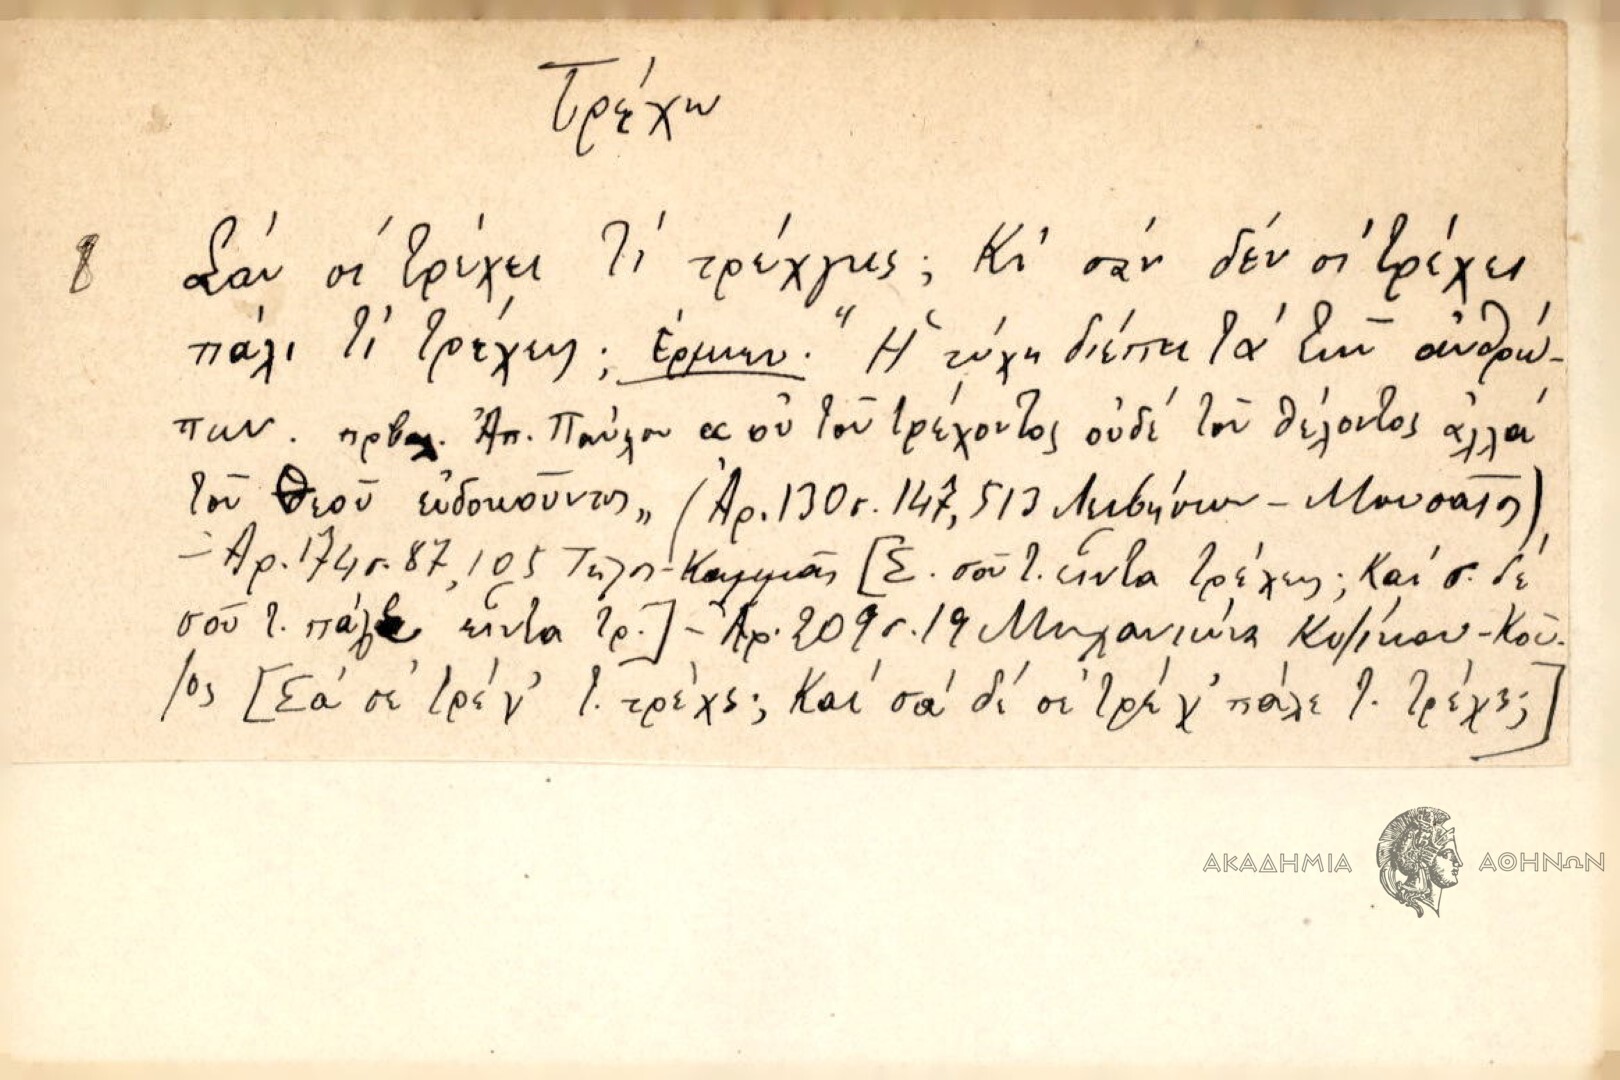 Τρέχω
8 Σάν σέ τρέχει τί τρέχεις; Κι σάν δέν σέ τρέχει
πάλι τί τρέχεις; Ἑρμην. "Ἡ τύχη διέπει τά τῶν ἀνθρώ-
πων. πρβλ. Ἀπ. Παύλου « οὐ τοῦ τρέχοντος οὐδέ τοῦ θέλοντος ἀλλά
τοῦ Θεοῦ εὐδοκοῦντος„ (Ἀρ. 130 σ. 147, 513 Λειβήσιον - Μουσαῖος)
- Ἀρ. 174 σ. 87, 105 Τῆλος - Καμμᾶς [Σ. σοῦ τ. εἶντα τρέχεις; Καί σ. δέ
σοῦ τ. πάλε εἶντα τρ.] - Ἀρ. 209 σ. 19 Μηχανιώνα Κυζίκου - Κοῦ-
ζος [Σά σέ τρέχ' τ. τρέχς; Καί σά δέ σέ τρέχ' πάλε τ. τρέχς;]
ΑΚΑΔΗΜΙΑ ΑΘΗΝΩΝ